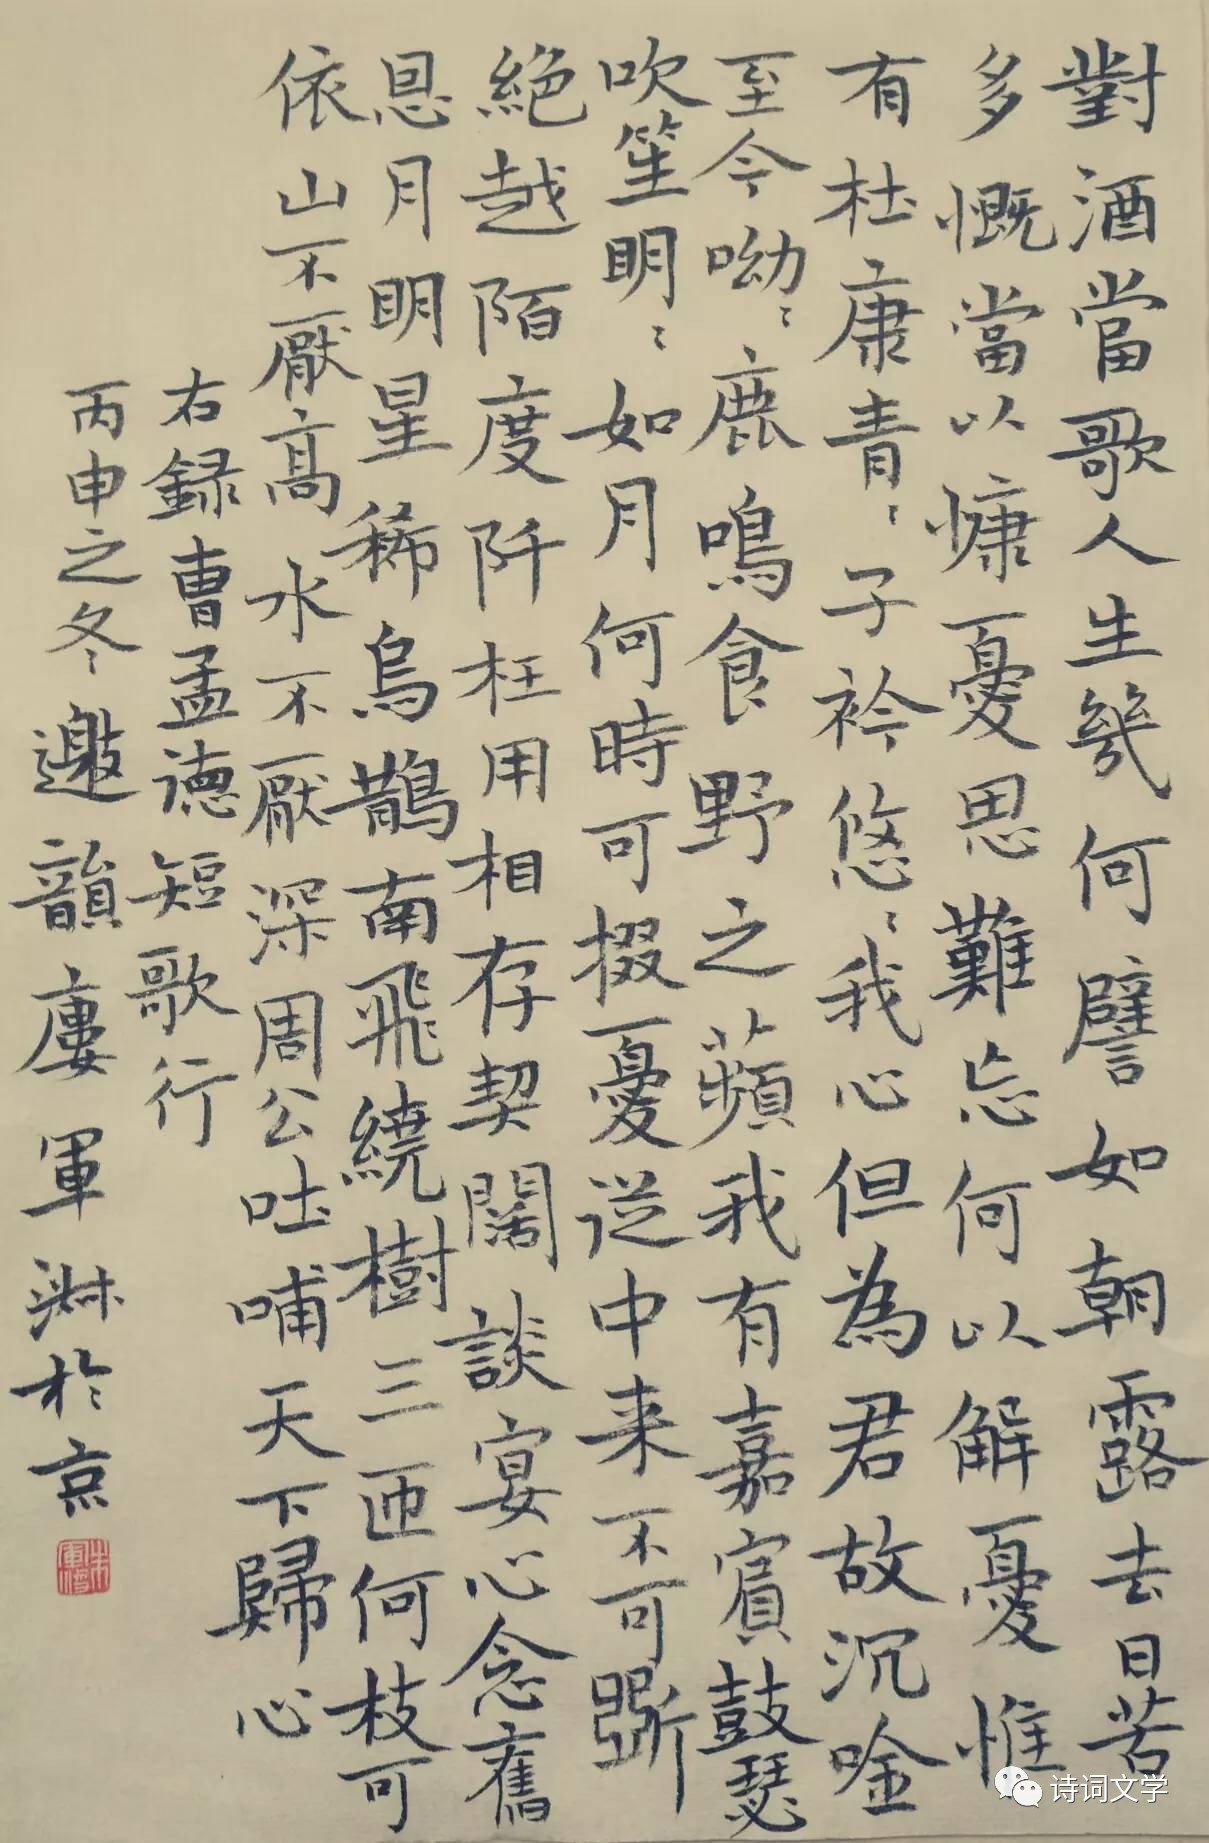 對酒當歌人生幾何譬如朝露去日苦
多慨當以慷憂思難忘何以解憂惟
有杜康青〻子衿悠〻我心但為君故沉唫
至今呦〻鹿鳴食野之蘋我有嘉賓鼓瑟
吹笙明〻如月何時可掇憂從中来不可斷
絕越陌度阡枉用相存契闊談宴心念舊
恩月明星稀烏鵲南飛繞樹三匝何枝可
依山不厭高水不厭深周公吐哺天下歸心
右録曹孟德短歌行
丙申之冬邀韻廔軍淋於京
诗词文学